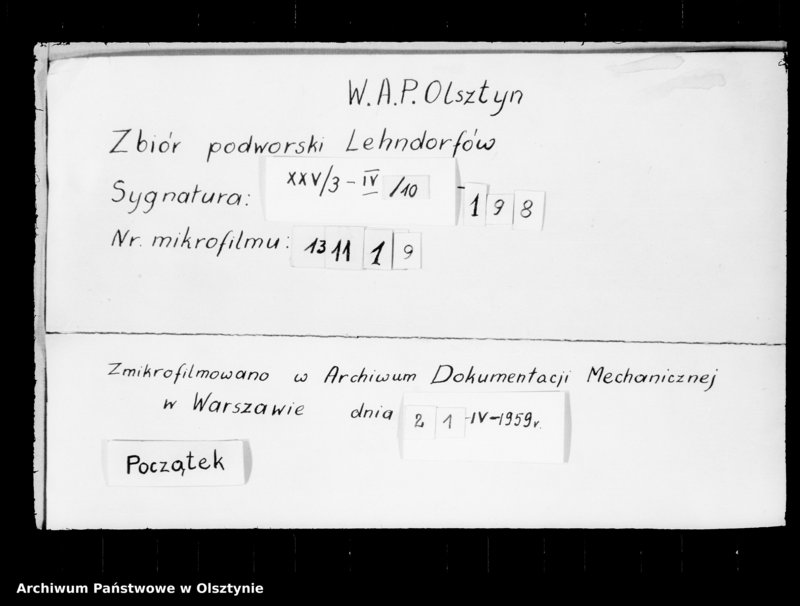 W.A.P. Olsztyn
Zbiór podworski Lehndorfów
Sygnatura: XXV/3 - IV /10 - 198
Nr. mikrofilmu: 131119
Zmikrofilmowano w Archiwum Dokumentacji Mechanicznej
w Warszawie dnia 21-IV-1959r.
Początek
Archiwum Państwowe w Olsztynie